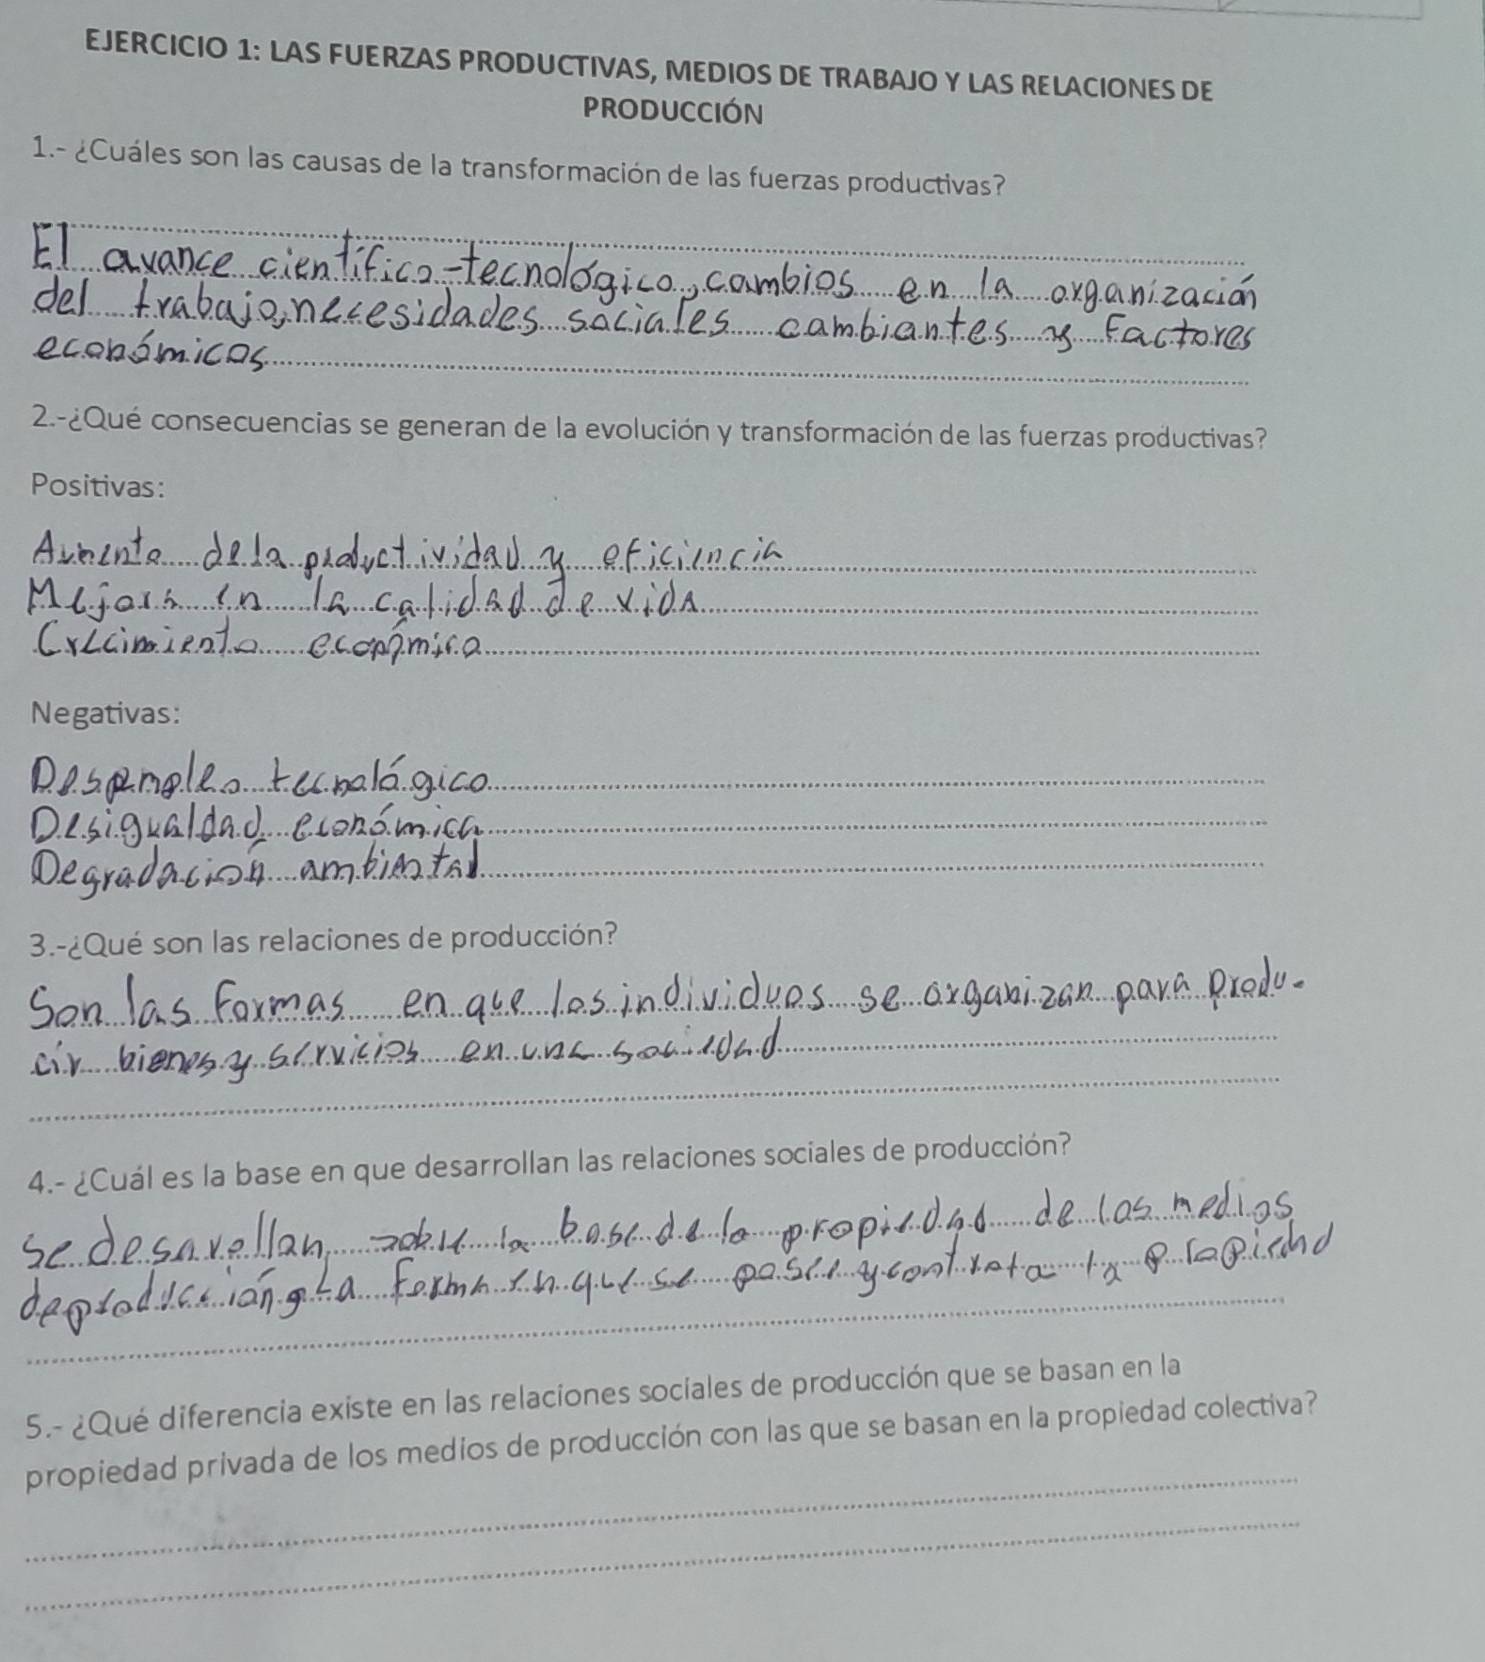 EJERCICIO 1: LAS FUERZAS PRODUCTIVAS, MEDIOS DE TRABAJO Y LAS RELACIONES DE
PRODUCCIÓN
1.- ¿Cuáles son las causas de la transformación de las fuerzas productivas?
El avance científico-tecnológico, cambios en la organización
del trabajo, necesidades sociales cambiantes y Factores
económicos
2.-¿Qué consecuencias se generan de la evolución y transformación de las fuerzas productivas?
Positivas:
Aumento de la productividad y eficiencia
Mejora en la calidad de vida
Crecimiento económico
Negativas:
Desempleo tecnológico
Desigualdad económica
Degradación ambiental
3.-¿Qué son las relaciones de producción?
Son las Formas en que los individuos se organizan para produ-
cir bienes y servicios en una sociedad
4.- ¿Cuál es la base en que desarrollan las relaciones sociales de producción?
Se desarollan sobre la base de la propiedad de los medios
de producción y La forma en que se posee y contrata la propiedad
5.- ¿Qué diferencia existe en las relaciones sociales de producción que se basan en la
propiedad privada de los medios de producción con las que se basan en la propiedad colectiva?